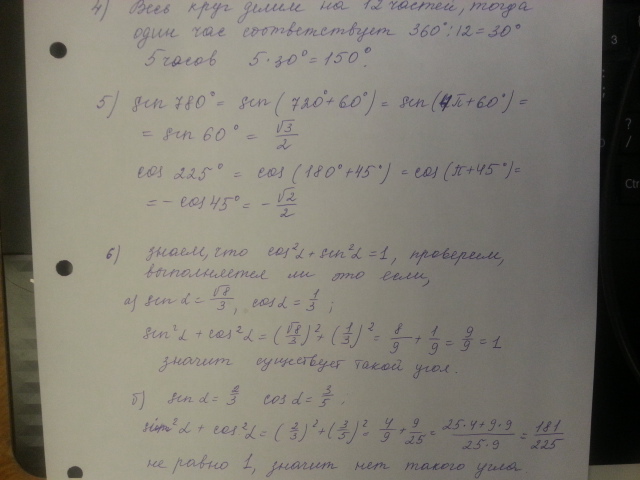 4) Весь круг делим на 12 частей, тогда
один час соответствует 360° : 12 = 30°
5 часов 5·30° = 150°.
5) sin 780° = sin (720° + 60°) = sin (4π + 60°) =
= sin 60° = √3/2
cos 225° = cos (180° + 45°) = cos (π + 45°) =
= - cos 45° = - √2/2
6) знаем, что cos²α + sin²α = 1, проверим,
выполняется ли это если,
а) sin α = √8/3, cos α = 1/3 ;
sin²α + cos²α = (√8/3)² + (1/3)² = 8/9 + 1/9 = 9/9 = 1
значит существует такой угол.
б) sin α = 2/3 cos α = 3/5 .
sin²α + cos²α = (2/3)² + (3/5)² = 4/9 + 9/25 = 25·4+9·9/25·9 = 181/225
не равно 1, значит нет такого угла
3
?
/
Ctr